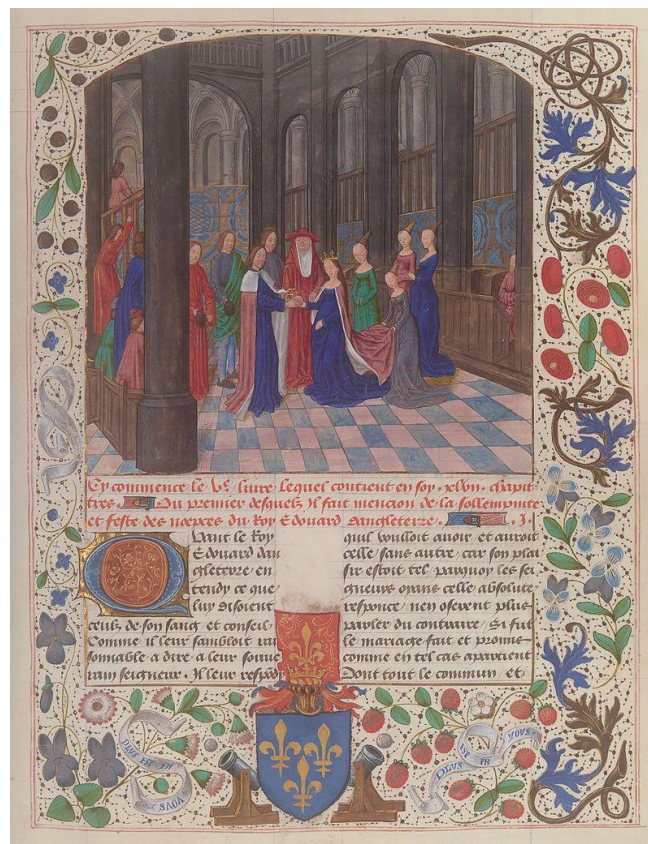 Cy commence le Ve. livre lequel contient en soy .xlvii. chapit
tres. Du premier desquelz Il fait mencion de la sollempnite
et feste des nopces du Roy Edouard dangleterre. .i.
Quant le Roy
Edouard dan
gleterre en
tendy ce que
luy disoient
ceulx de son sang et conseil
Comme il leur sambloit rai
sonnable a dire a leur souve
rain seigneur. Il leur respon
quil vouloit avoir et auroit
celle sans autre car son plai
sir estoit tel parquoy les sei
gneurs oyans celle absolute
responce nen oserent plus
parler du contraire Si fut
le mariage fait et promis
comme en tel cas apartient
Dont tout le commun et
PLUS EST EN
VOUS
PLUS
EST EN
VOUS